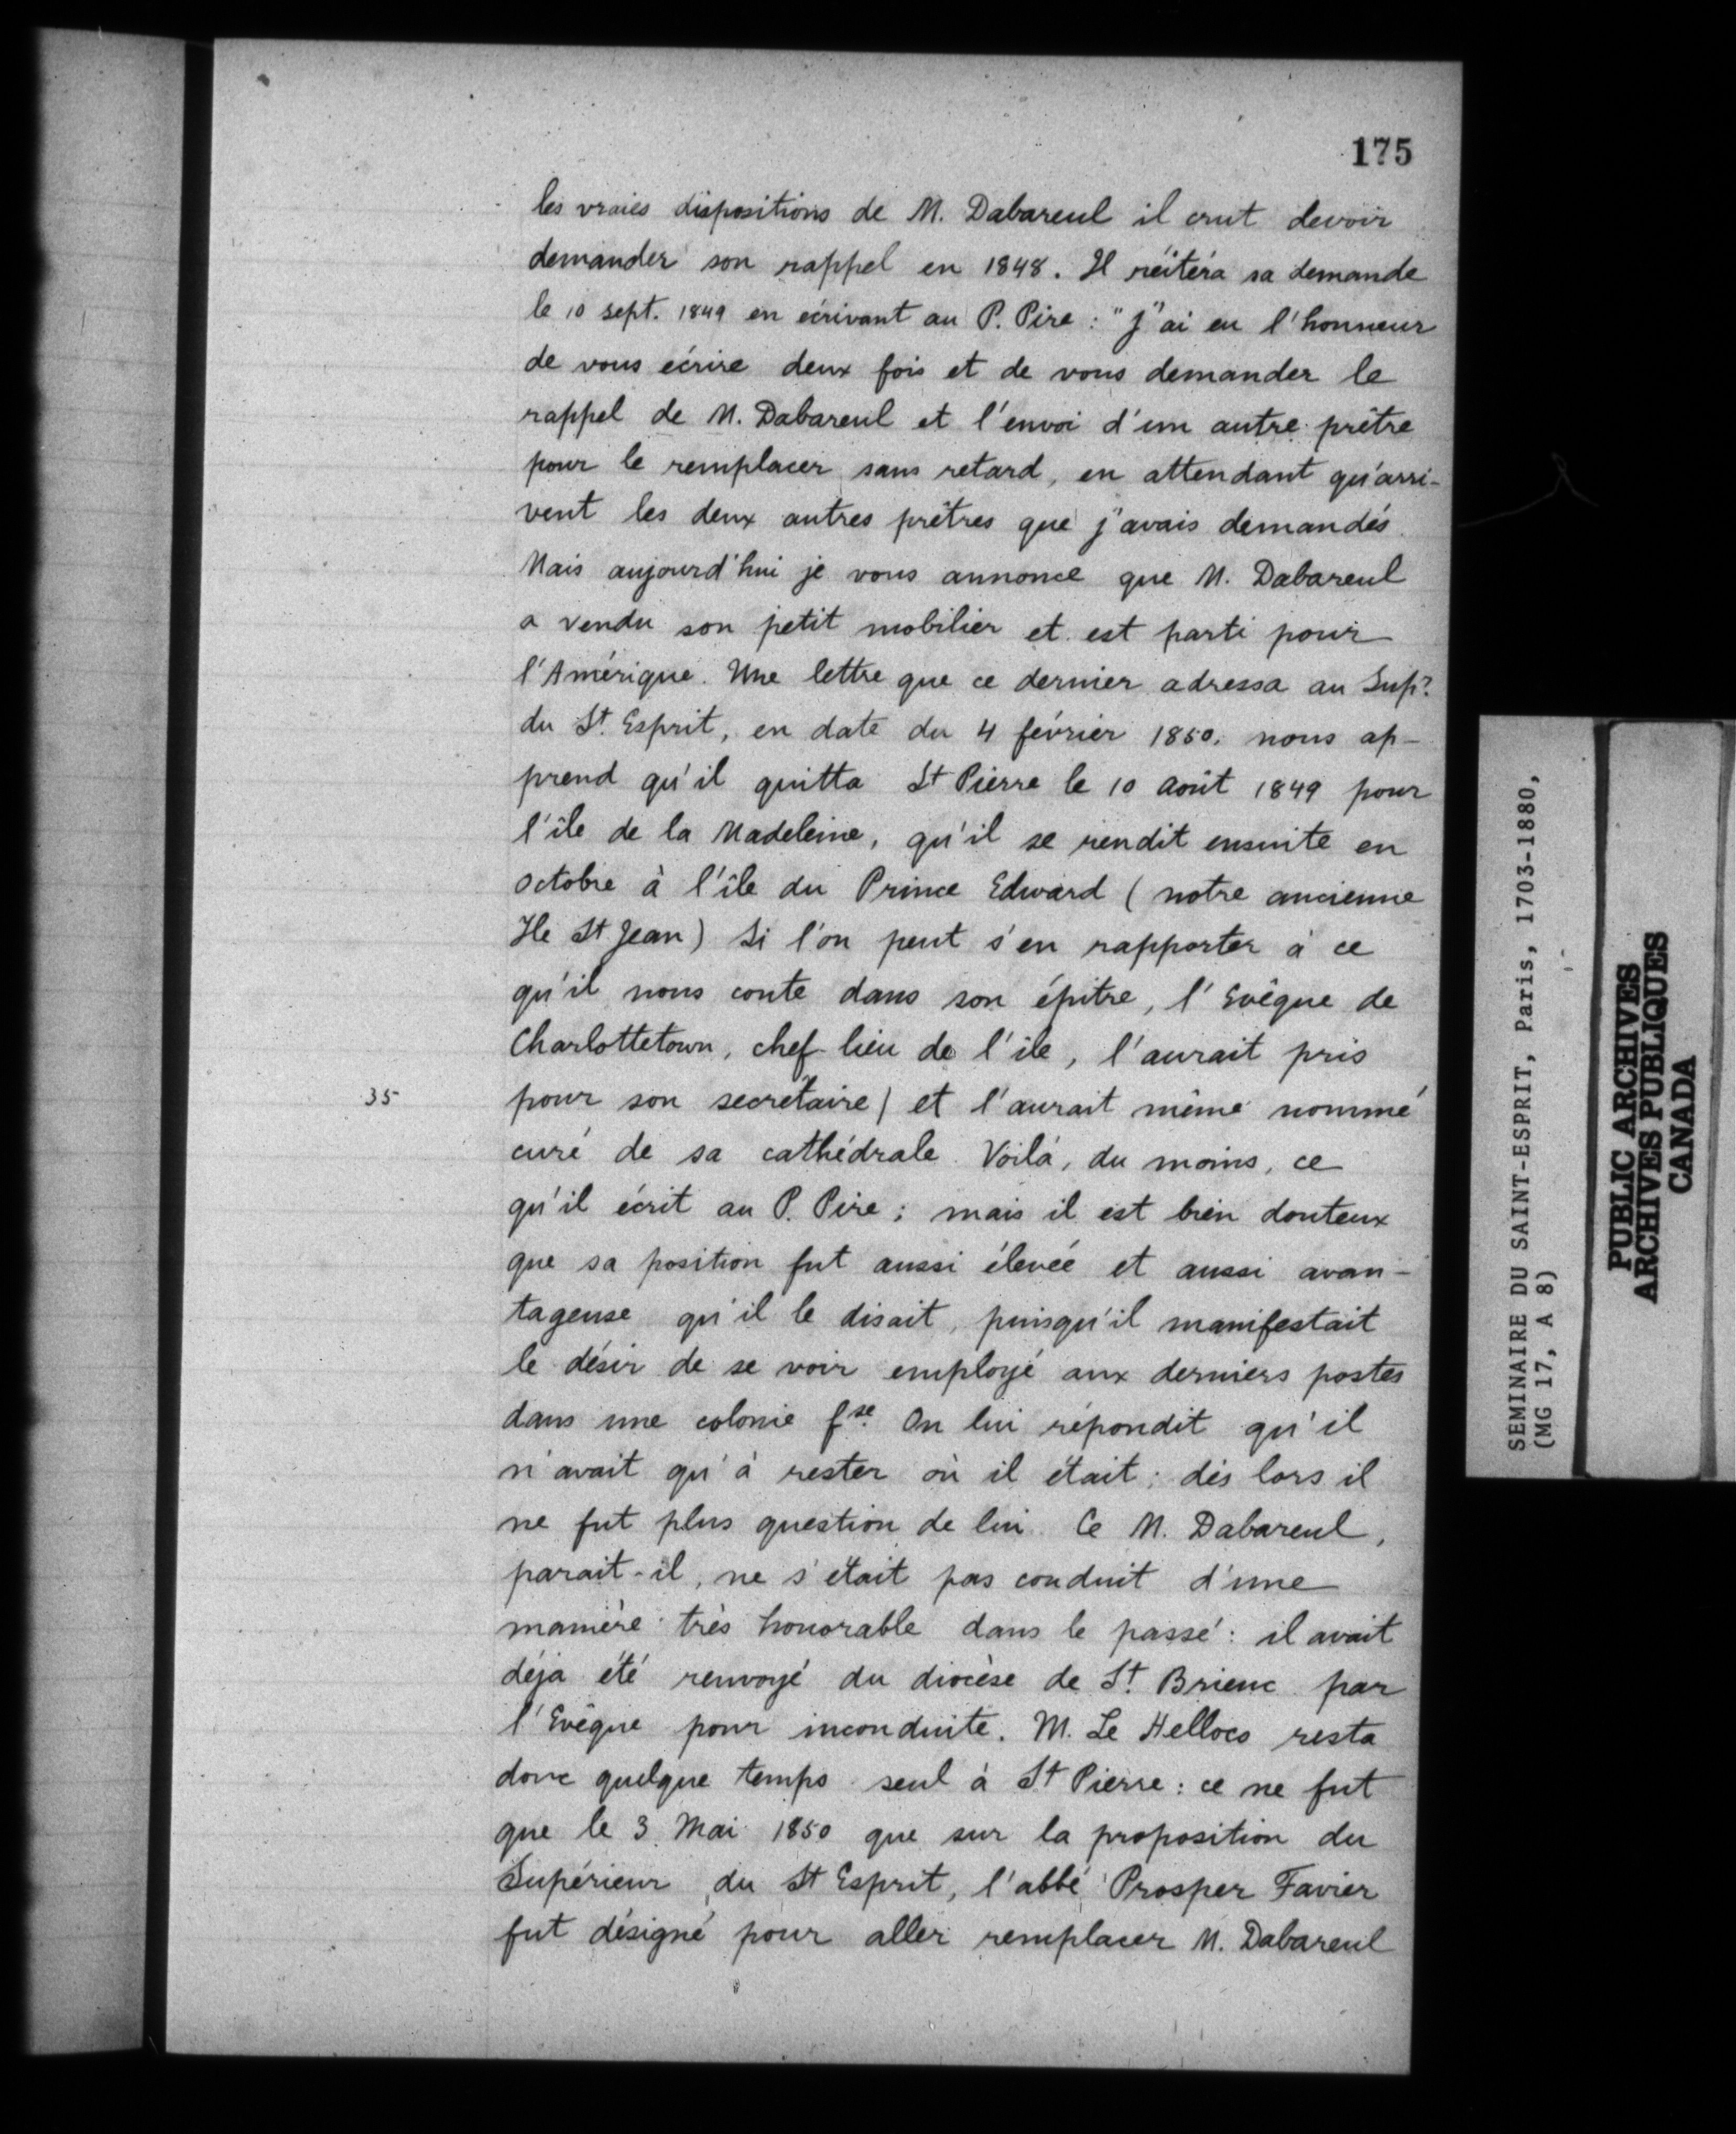 175
les vraies dispositions de M. Dabareul il crut devoir
demander son rappel en 1848. Il réitéra sa demande
le 10 sept. 1849 en écrivant au P. Pire : "J'ai eu l'honneur
de vous écrire deux fois et de vous demander le
rappel de M. Dabareul et l'envoi d'un autre prêtre
pour le remplacer sans retard, en attendant qu'arri-
vent les deux autres prêtres que j'avais demandés.
Mais aujourd'hui je vous annonce que M. Dabareul
a vendu son petit mobilier et est parti pour
l'Amérique. Une lettre que ce dernier adressa au Supr
du St. Esprit, en date du 4 février 1850, nous ap-
prend qu'il quitta St Pierre le 10 août 1849 pour
l'île de la Madeleine, qu'il se rendit ensuite en
octobre à l'île du Prince Edward (notre ancienne
Ile St Jean) Si l'on peut s'en rapporter à ce
qu'il nous conte dans son épitre, l'Evêque de
Charlottetown, chef-lieu de l'île, l'aurait pris
35 pour son secrétaire) et l'aurait même nommé
curé de sa cathédrale. Voilà, du moins, ce
qu'il écrit au P. Pire ; mais il est bien douteux
que sa position fut aussi élevée et aussi avan-
tageuse qu'il le disait, puisqu'il manifestait
le désir de se voir employé aux derniers postes
dans une colonie fse. On lui répondit qu'il
n'avait qu'à rester où il était ; dès lors il
ne fut plus question de lui. Ce M. Dabareul,
parait-il, ne s'était pas conduit d'une
manière très honorable dans le passé : il avait
déja été renvoyé du diocèse de St. Brieuc par
l'Evêque pour inconduite. M. Le Helloco resta
donc quelque temps seul à St Pierre : ce ne fut
que le 3 Mai 1850 que sur la proposition du
Supérieur du St Esprit, l'abbé Prosper Favier
fut désigné pour aller remplacer M. Dabareul
SEMINAIRE DU SAINT-ESPRIT, Paris, 1703-1880,
(MG 17, A 8)
PUBLIC ARCHIVES
ARCHIVES PUBLIQUES
CANADA